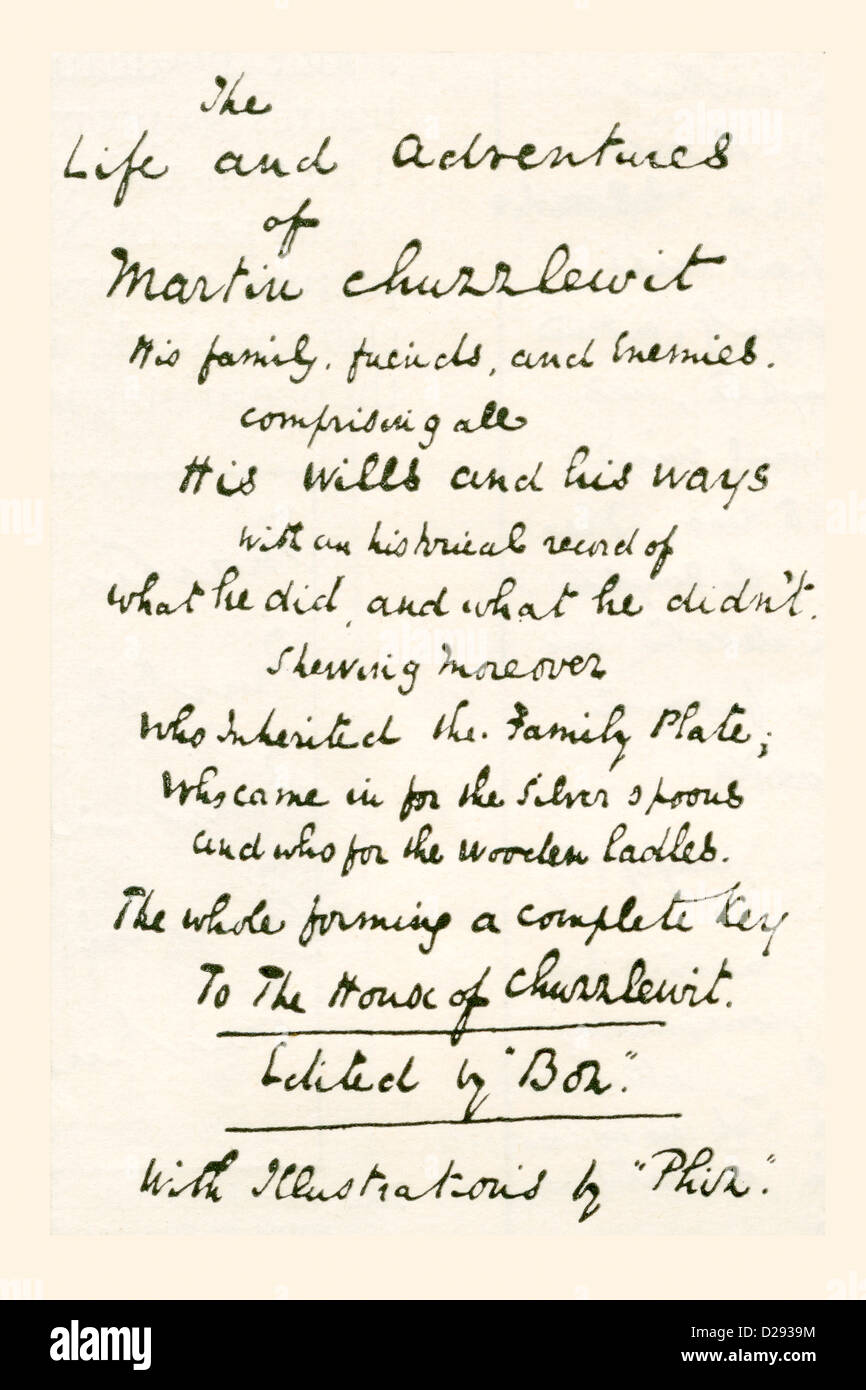 The
Life and Adventures
of
Martin Chuzzlewit
His family, friends, and Enemies.
Comprising all
His Wills and his ways
With an historical record of
what he did, and what he didn't.
Shewing moreover
Who Inherited the Family Plate;
Who came in for the Silver spoons
and who for the Wooden ladles.
The whole forming a complete Key
To The House of Chuzzlewit.
Edited by "Boz".
With Illustrations by "Phiz".
alamy
Image ID: D2939M
www.alamy.com